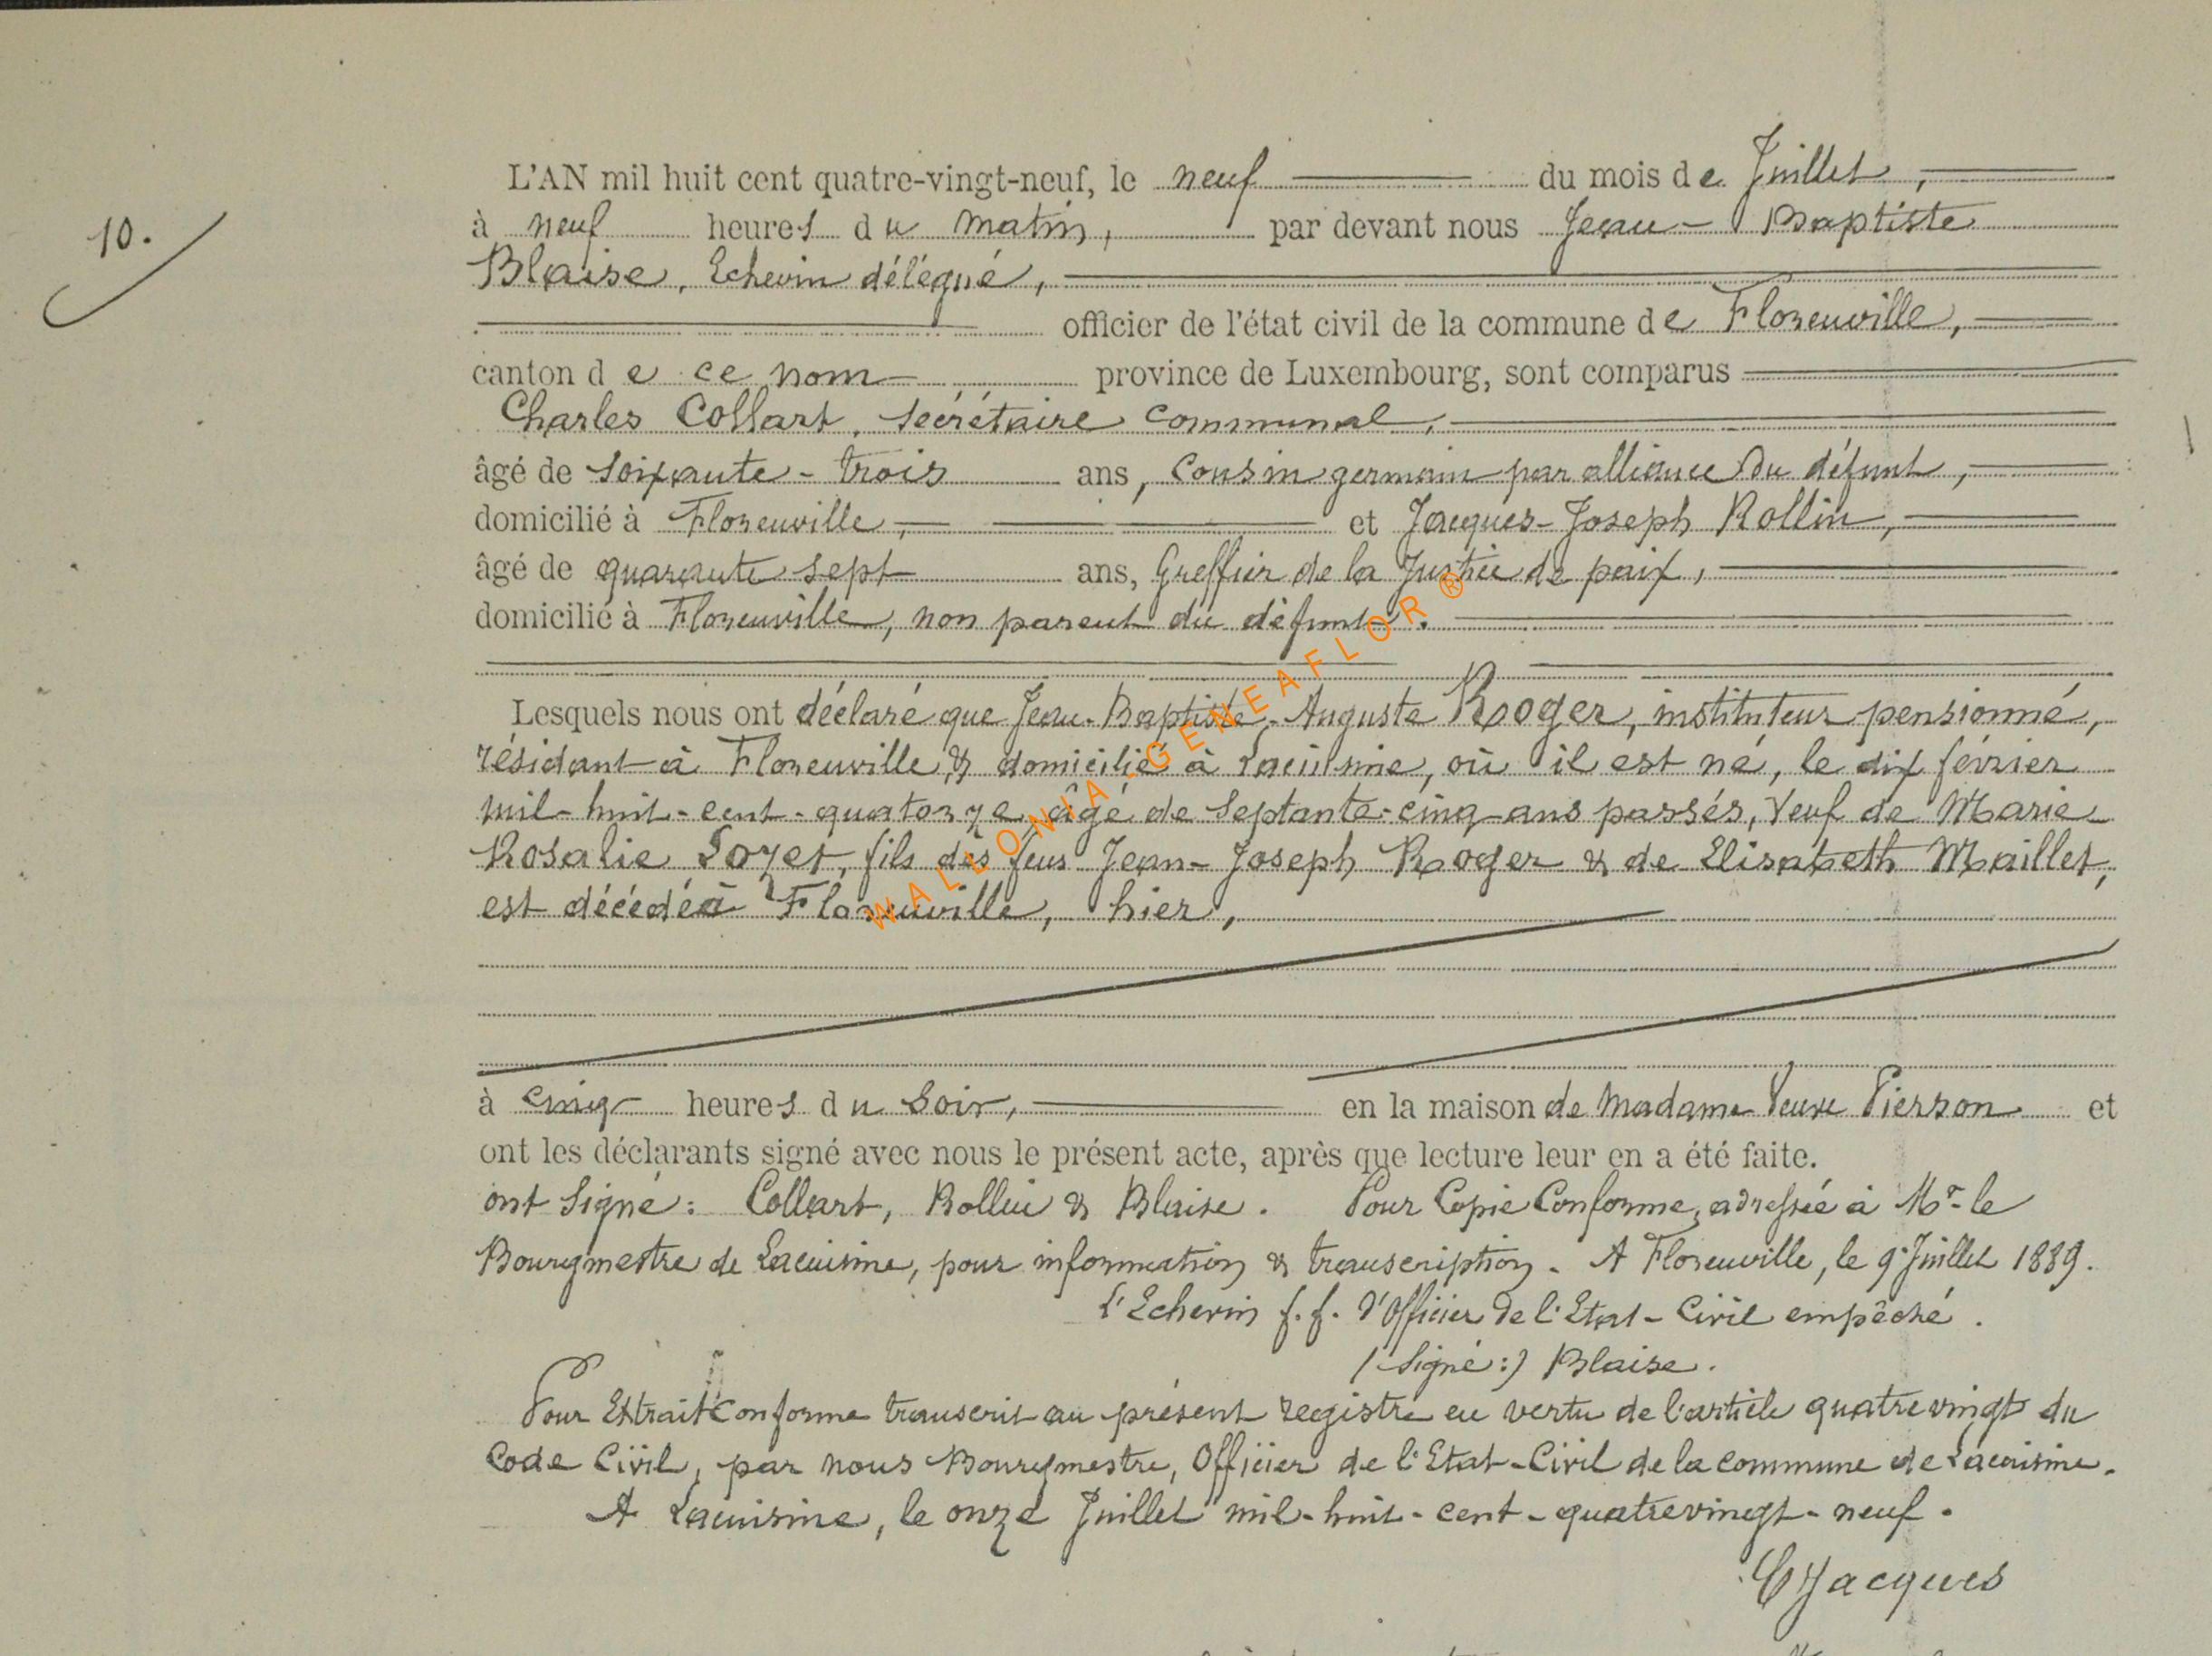 10.
L'AN mil huit cent quatre-vingt-neuf, le neuf du mois de Juillet,
à neuf heures du matin, par devant nous Jean-Baptiste
Blaise, Echevin délégué,
officier de l'état civil de la commune de Florenville,
canton de ce nom province de Luxembourg, sont comparus
Charles Collart, secrétaire communal,
âgé de soixante-trois ans, cousin germain par alliance du défunt,
domicilié à Florenville, et Jacques-Joseph Rollin,
âgé de quarante sept ans, Greffier de la Justice de paix,
domicilié à Florenville, non parent du défunt.
Lesquels nous ont déclaré que Jean-Baptiste-Auguste Roger, instituteur pensionné,
résidant à Florenville, & domicilié à Lacuisine, où il est né, le dix février
mil-huit-cent-quatorze, âgé de septante-cinq ans passés, veuf de Marie
Rosalie Lozet, fils des feus Jean-Joseph Roger & de Elisabeth Maillet,
est décédé à Florenville, hier,
à cinq heures du soir, en la maison de Madame Veuve Pierson et
ont les déclarants signé avec nous le présent acte, après que lecture leur en a été faite.
ont signé: Collart, Rollin & Blaise. Pour Copie Conforme, adressée à Mr le
Bourgmestre de Lacuisine, pour information & transcription. A Florenville, le 9 Juillet 1889.
L'Echevin f.f. d'Officier de l'Etat-Civil empêché.
(signé:) Blaise.
Pour Extrait Conforme transcrit au présent registre en vertu de l'article quatre vingt du
Code Civil, par nous Bourgmestre, Officier de l'Etat-Civil de la commune de Lacuisine.
A Lacuisine, le onze Juillet mil-huit-cent-quatrevingt-neuf.
Jacques
WALLONIA-GENEAFLOR ®